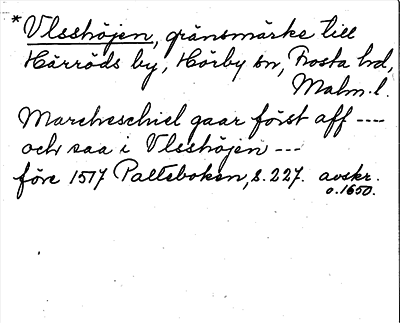 *Vlsshöjen, gränsmärke till
Härröds by, Hörby sn, Frosta hd,
Malm. l.
Marcheschiel gaar först aff ----
och saa i Vlsshöjen ---
före 1517 Palteboken, s. 227. avskr.
o. 1650.